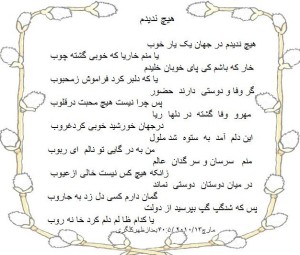 هیچ ندیدم
هیچ ندیدم در جهان یک یار خوب
یا منم خاریا که خوبی گشته چوب
خار که باشم کی پای خوبان خلیدم
یا که دلبر کرد فراموش زمحبوب
گر وفا و دوستی دارند حضور
پس چرا نیست هیچ محبت درقلوب
مهرو وفا گشته در دلها ریا
درجهان خورشید خوبی کردغروب
این دلم آمد به ستوه شد ملول
من به در گایی تو نالم ای ربوب
منم سرسان و سر گدان عالم
زانکه هیچ کس نیست خالی ازعیوب
در میان دوستان دوستی نماند
گمان دارم کسی دل زد به جاروب
پس که شدگپ گپ بپرسید از دولت
یا کدام ظا لم دلم کرد خا نه روب